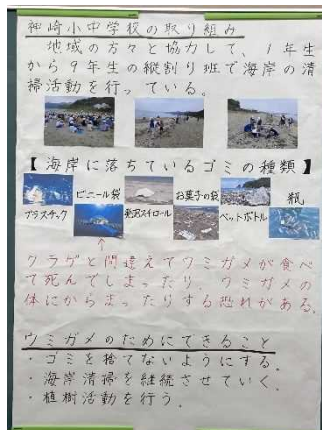 神崎小中学校の取り組み
地域の方々と協力して、1年生
から9年生の縦割り班で海岸の清
掃活動を行っている。
【海岸に落ちているゴミの種類】
ビニール袋 お菓子の袋 瓶
プラスチック 発泡スチロール ペットボトル
↑
クラゲと間違えてウミガメが食べ
て死んでしまったり、ウミガメの
体にからまったりする恐れがある。
ウミガメのためにできること
・ゴミを捨てないようにする。
・海岸清掃を継続させていく。
・植樹活動を行う。